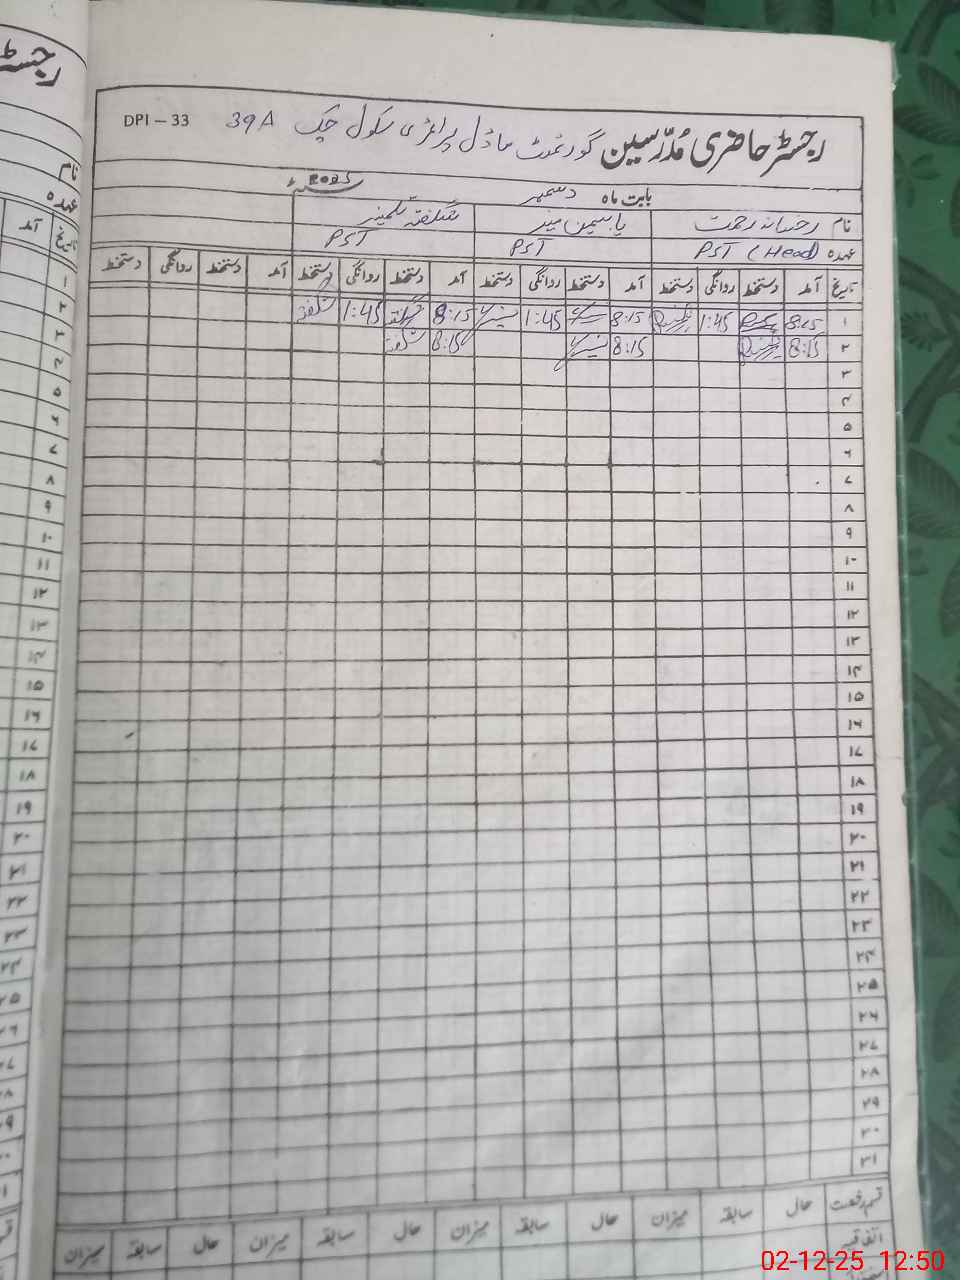 DPI – 33
رجسٹر حاضری مُدرّسین گورنمنٹ ماڈل پرائمری سکول چک 39A
بابت ماہ دسمبر 2025
نام رخسانہ رحمت یاسمین منیر شگفتہ
عہدہ PST (Head) PST PST
تاریخ آمد دستخط روانگی دستخط آمد دستخط روانگی دستخط آمد دستخط روانگی دستخط آمد دستخط روانگی دستخط
۱ 8:15 1:45 8:15 1:45 8:15 1:45 شگفتہ
۲ 8:15 8:15 8:15 شگفتہ
۳
۴
۵
۶
۷
۸
۹
۱۰
۱۱
۱۲
۱۳
۱۴
۱۵
۱۶
۱۷
۱۸
۱۹
۲۰
۲۱
۲۲
۲۳
۲۴
۲۵
۲۶
۲۷
۲۸
۲۹
۳۰
۳۱
قسم رخصت حال سابقہ میزان حال سابقہ میزان حال سابقہ میزان حال سابقہ میزان
اتفاقیہ
رجسٹر
نام
عہدہ
تاریخ آمد
۱
۲
۳
۴
۵
۶
۷
۸
۹
۱۰
۱۱
۱۲
۱۳
۱۴
۱۵
۱۶
۱۷
۱۸
۱۹
۲۰
۲۱
۲۲
۲۳
۲۴
۲۵
۲۶
۲۷
۲۸
۲۹
02-12-25 12:50